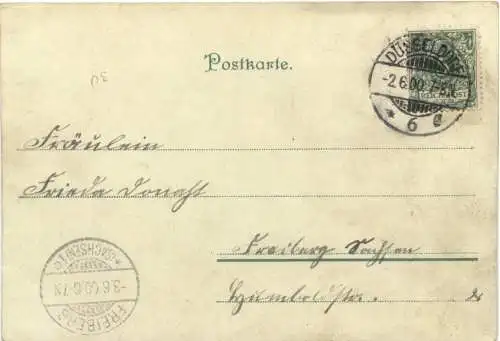 DÜSSELDORF
-2.6.00.7-8N.
* 6 e
REICHSPOST
Postkarte.
30
Fräulein
Frieda Donath
Freiberg Sachsen
Humboldtstr.
* (SACHSEN) 1 *
-3.6.00.6-7N
FREIBERG